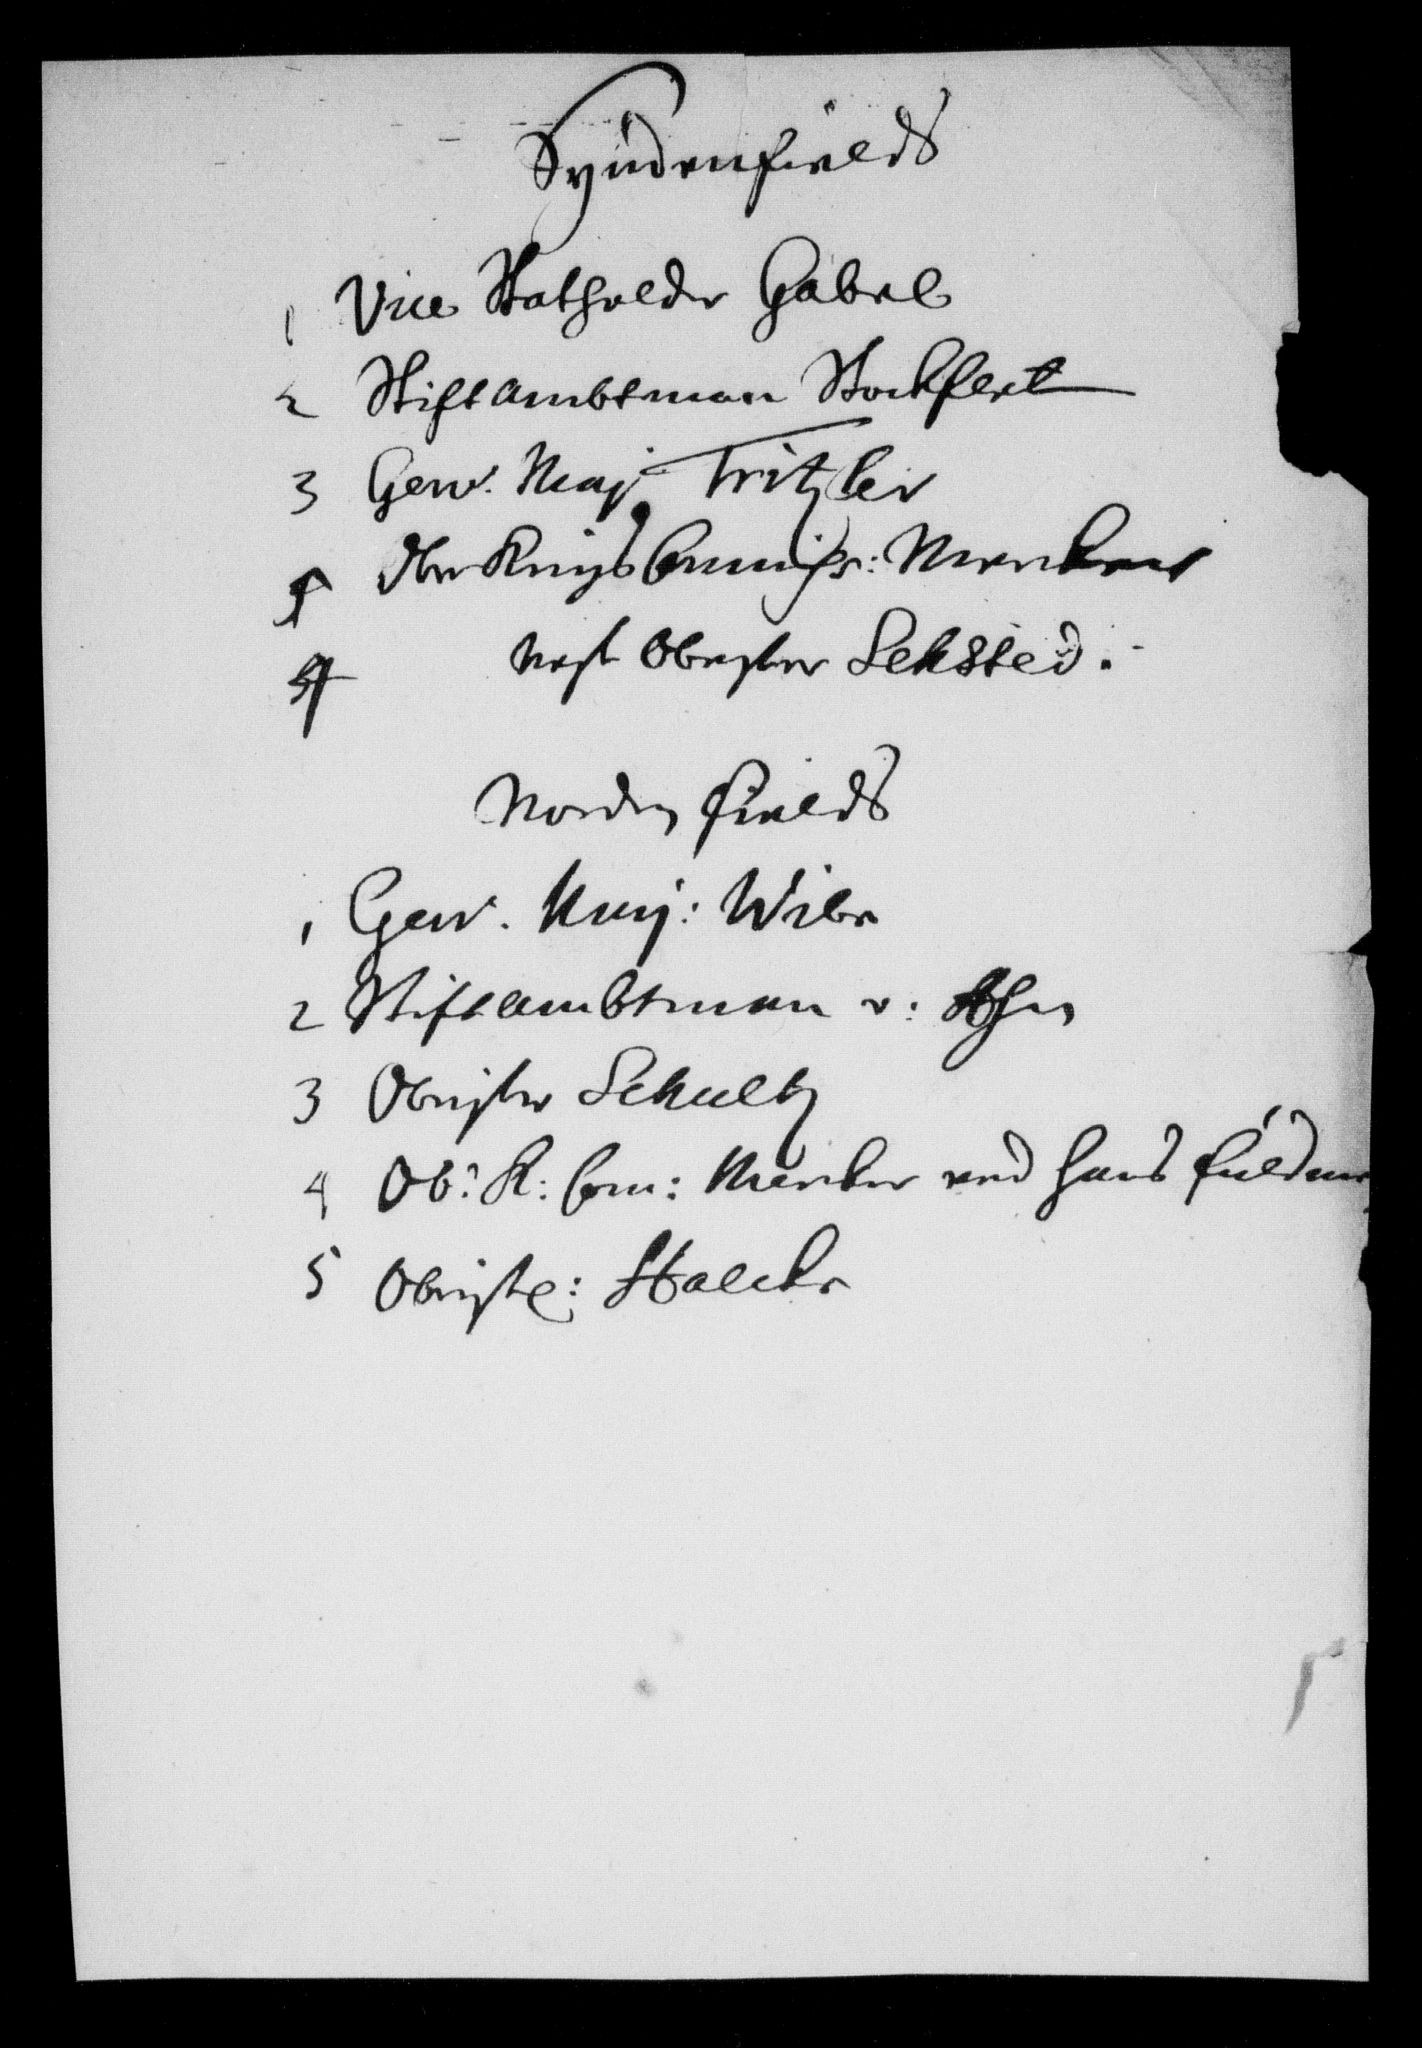 Syndenfields
1 Vice Statholder Gabel
2 Stiftambtman Stockflet
3 Gen. Maj. Tritzler
5 Ober Krigs Commiss: Mencken
4 nest Obrister Sehsted.
Norden fields
1 Gen. Maj: Wibe
2 Stiftambtman v: Ahn
3 Obrister Schultz
4 Ob: K: Com: Mencken und Hans
5 Obriste: